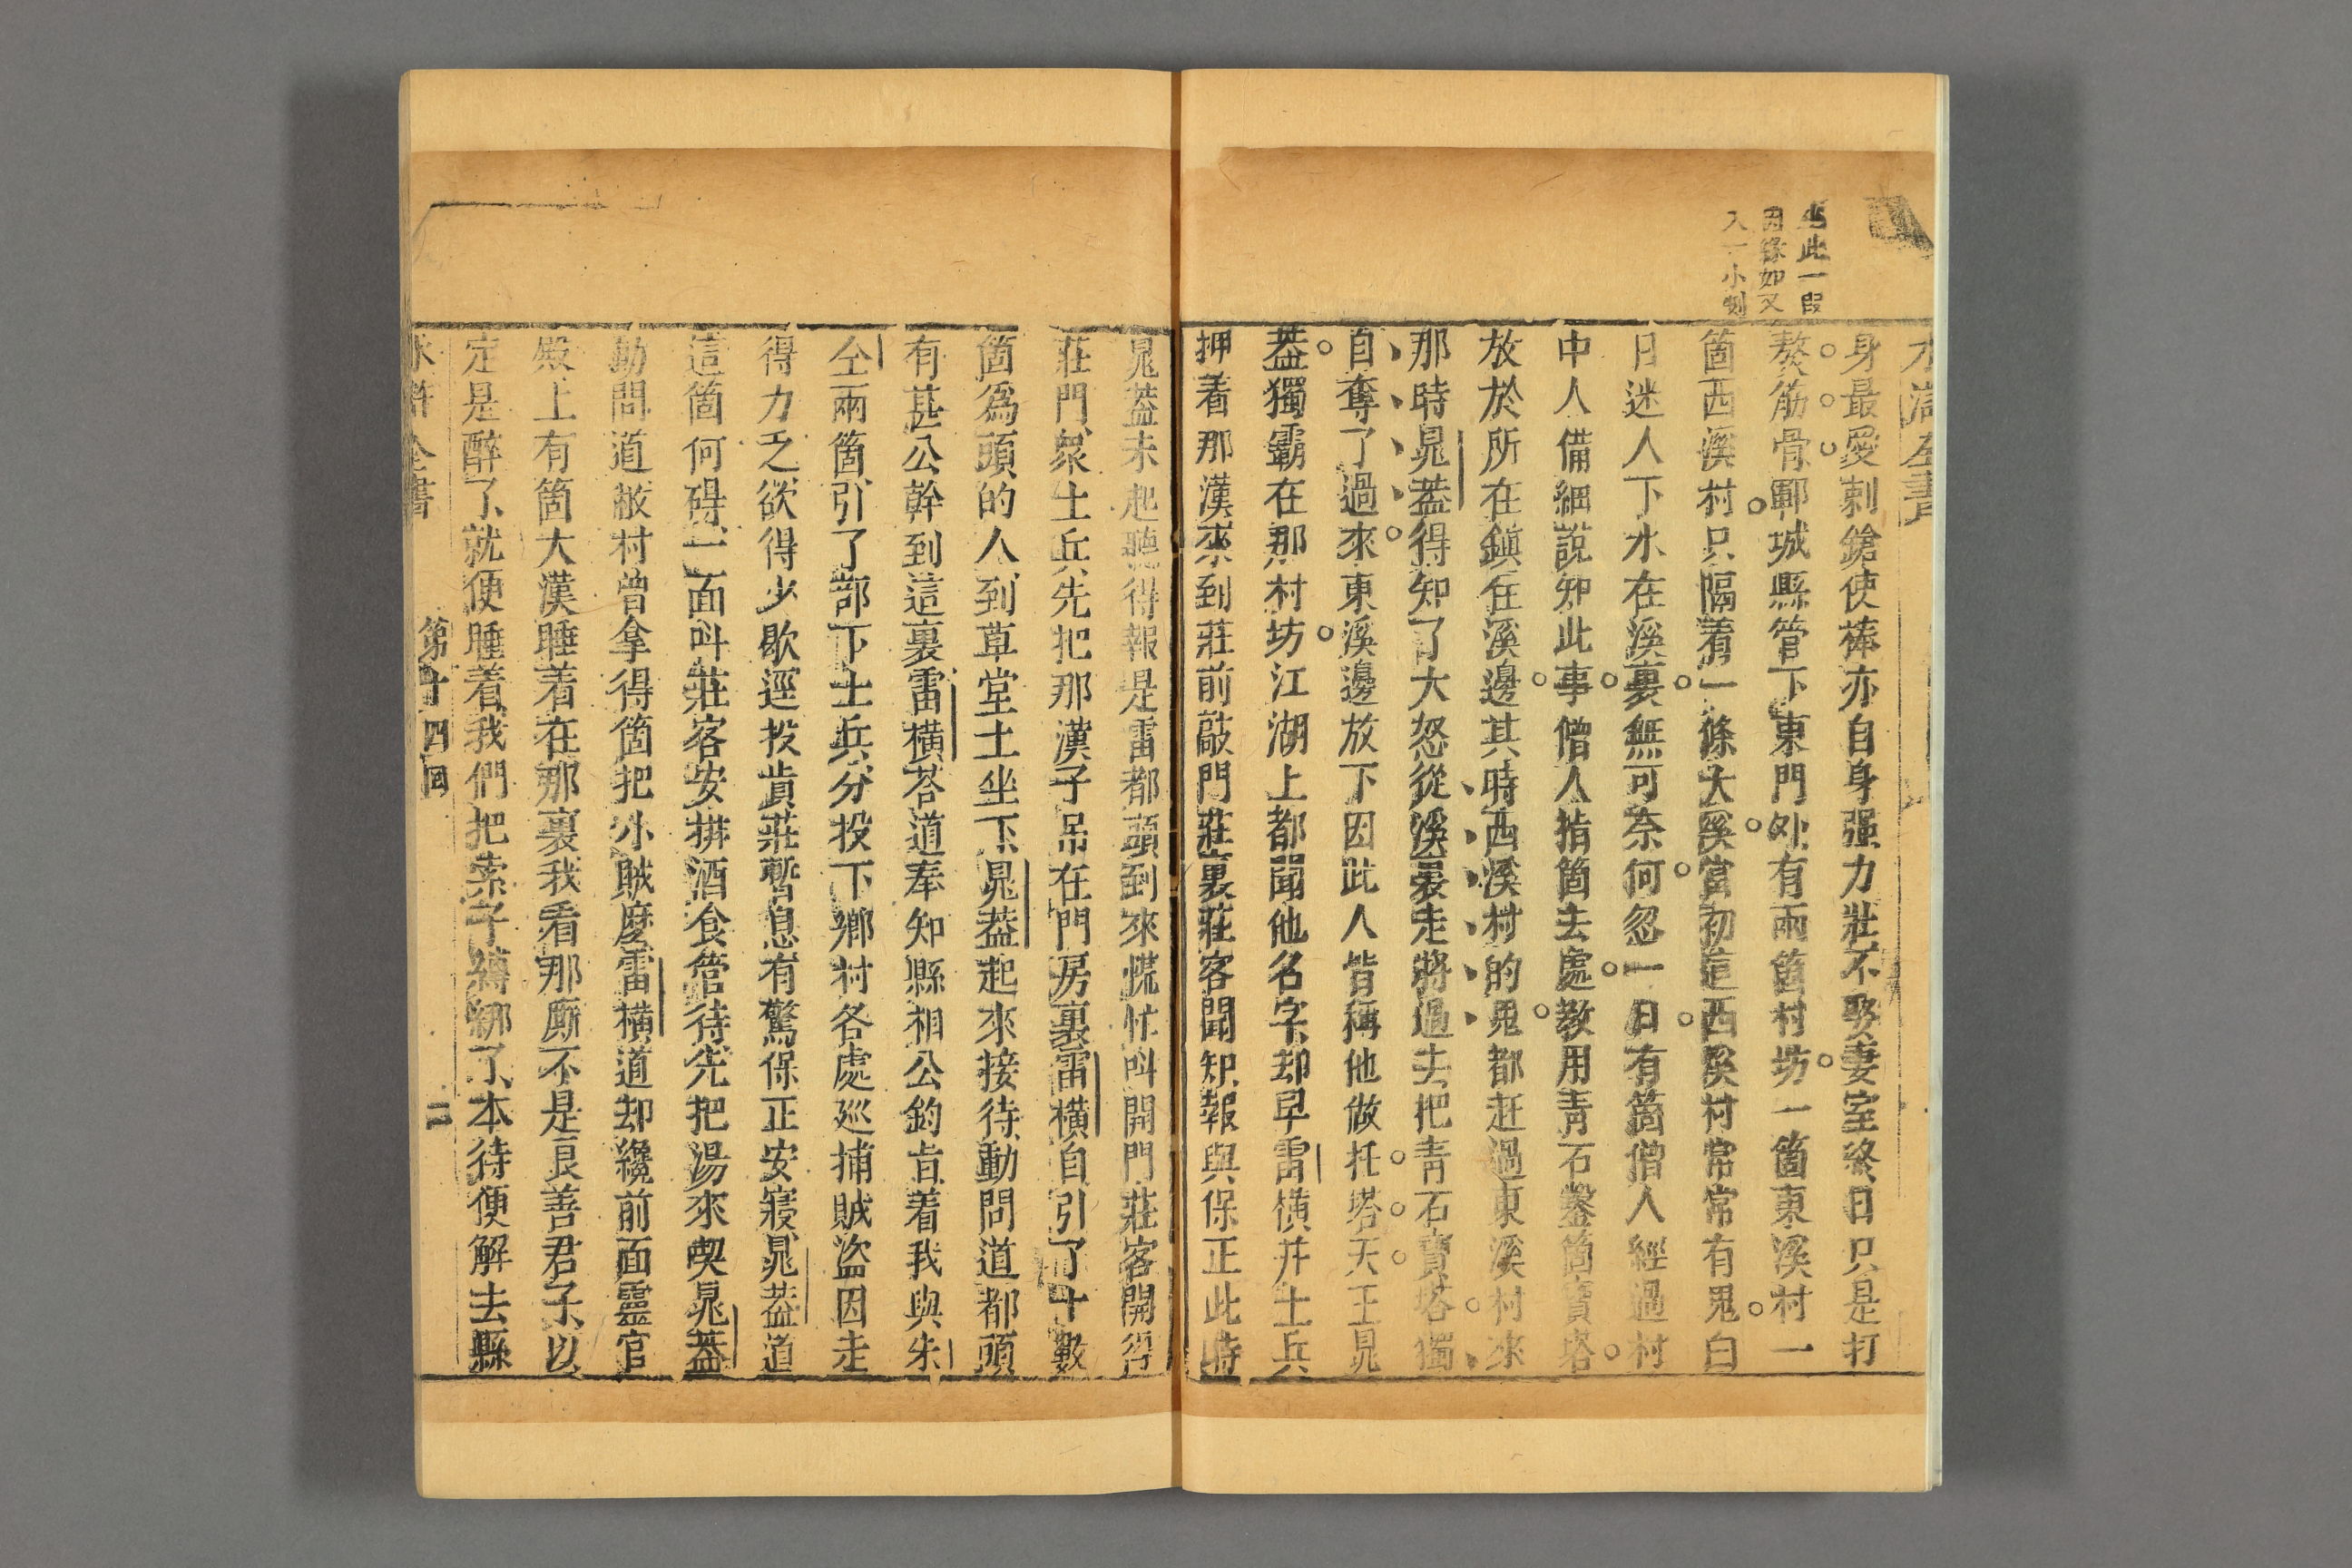 水滸全書
此一叚
因緣如又
入一小刻
身最愛刺鎗使棒亦自身强力壯不娶妻室終日只是打
熬筋骨鄆城縣管下東門外有兩箇村坊一箇東溪村一
箇西溪村只隔着一條大溪當初這西溪村常常有鬼白
日迷人下水在溪裏無可奈何忽一日有箇僧人經過村
中人備細說知此事僧人指箇去處教用青石鑿箇寶塔
放於所在鎮住溪邊其時西溪村的鬼都赶過東溪村來
那時晁葢得知了大怒從溪裏走將過去把青石寶塔獨
自奪了過來東溪邊放下因此人皆稱他做托塔天王晁
葢獨霸在那村坊江湖上都聞他名字却早雷横并土兵
押着那漢來到莊前敲門莊裏莊客聞知報與保正此時
晁葢未起聽得報是雷都頭到來慌忙呌開門莊客開得
莊門衆土兵先把那漢子吊在門房裏雷横自引了十數
箇爲頭的人到草堂上坐下晁葢起來接待動問道都頭
有甚公幹到這裏雷横荅道奉知縣相公鈞旨着我與朱
仝兩箇引了部下土兵分投下鄉村各處廵捕賊盜因走
得力乏欲得少歇逕投貴莊暫息有驚保正安寢晁葢道
這箇何碍一面呌莊客安排酒食管待先把湯來喫晁葢
動問道敝村曾拿得箇把小賊麽雷横道却纔前面靈官
殿上有箇大漢睡着在那裏我看那厮不是良善君子以
定是醉了就便睡着我們把索子縛綁了本待便解去縣
水滸全書
第十四囬
二